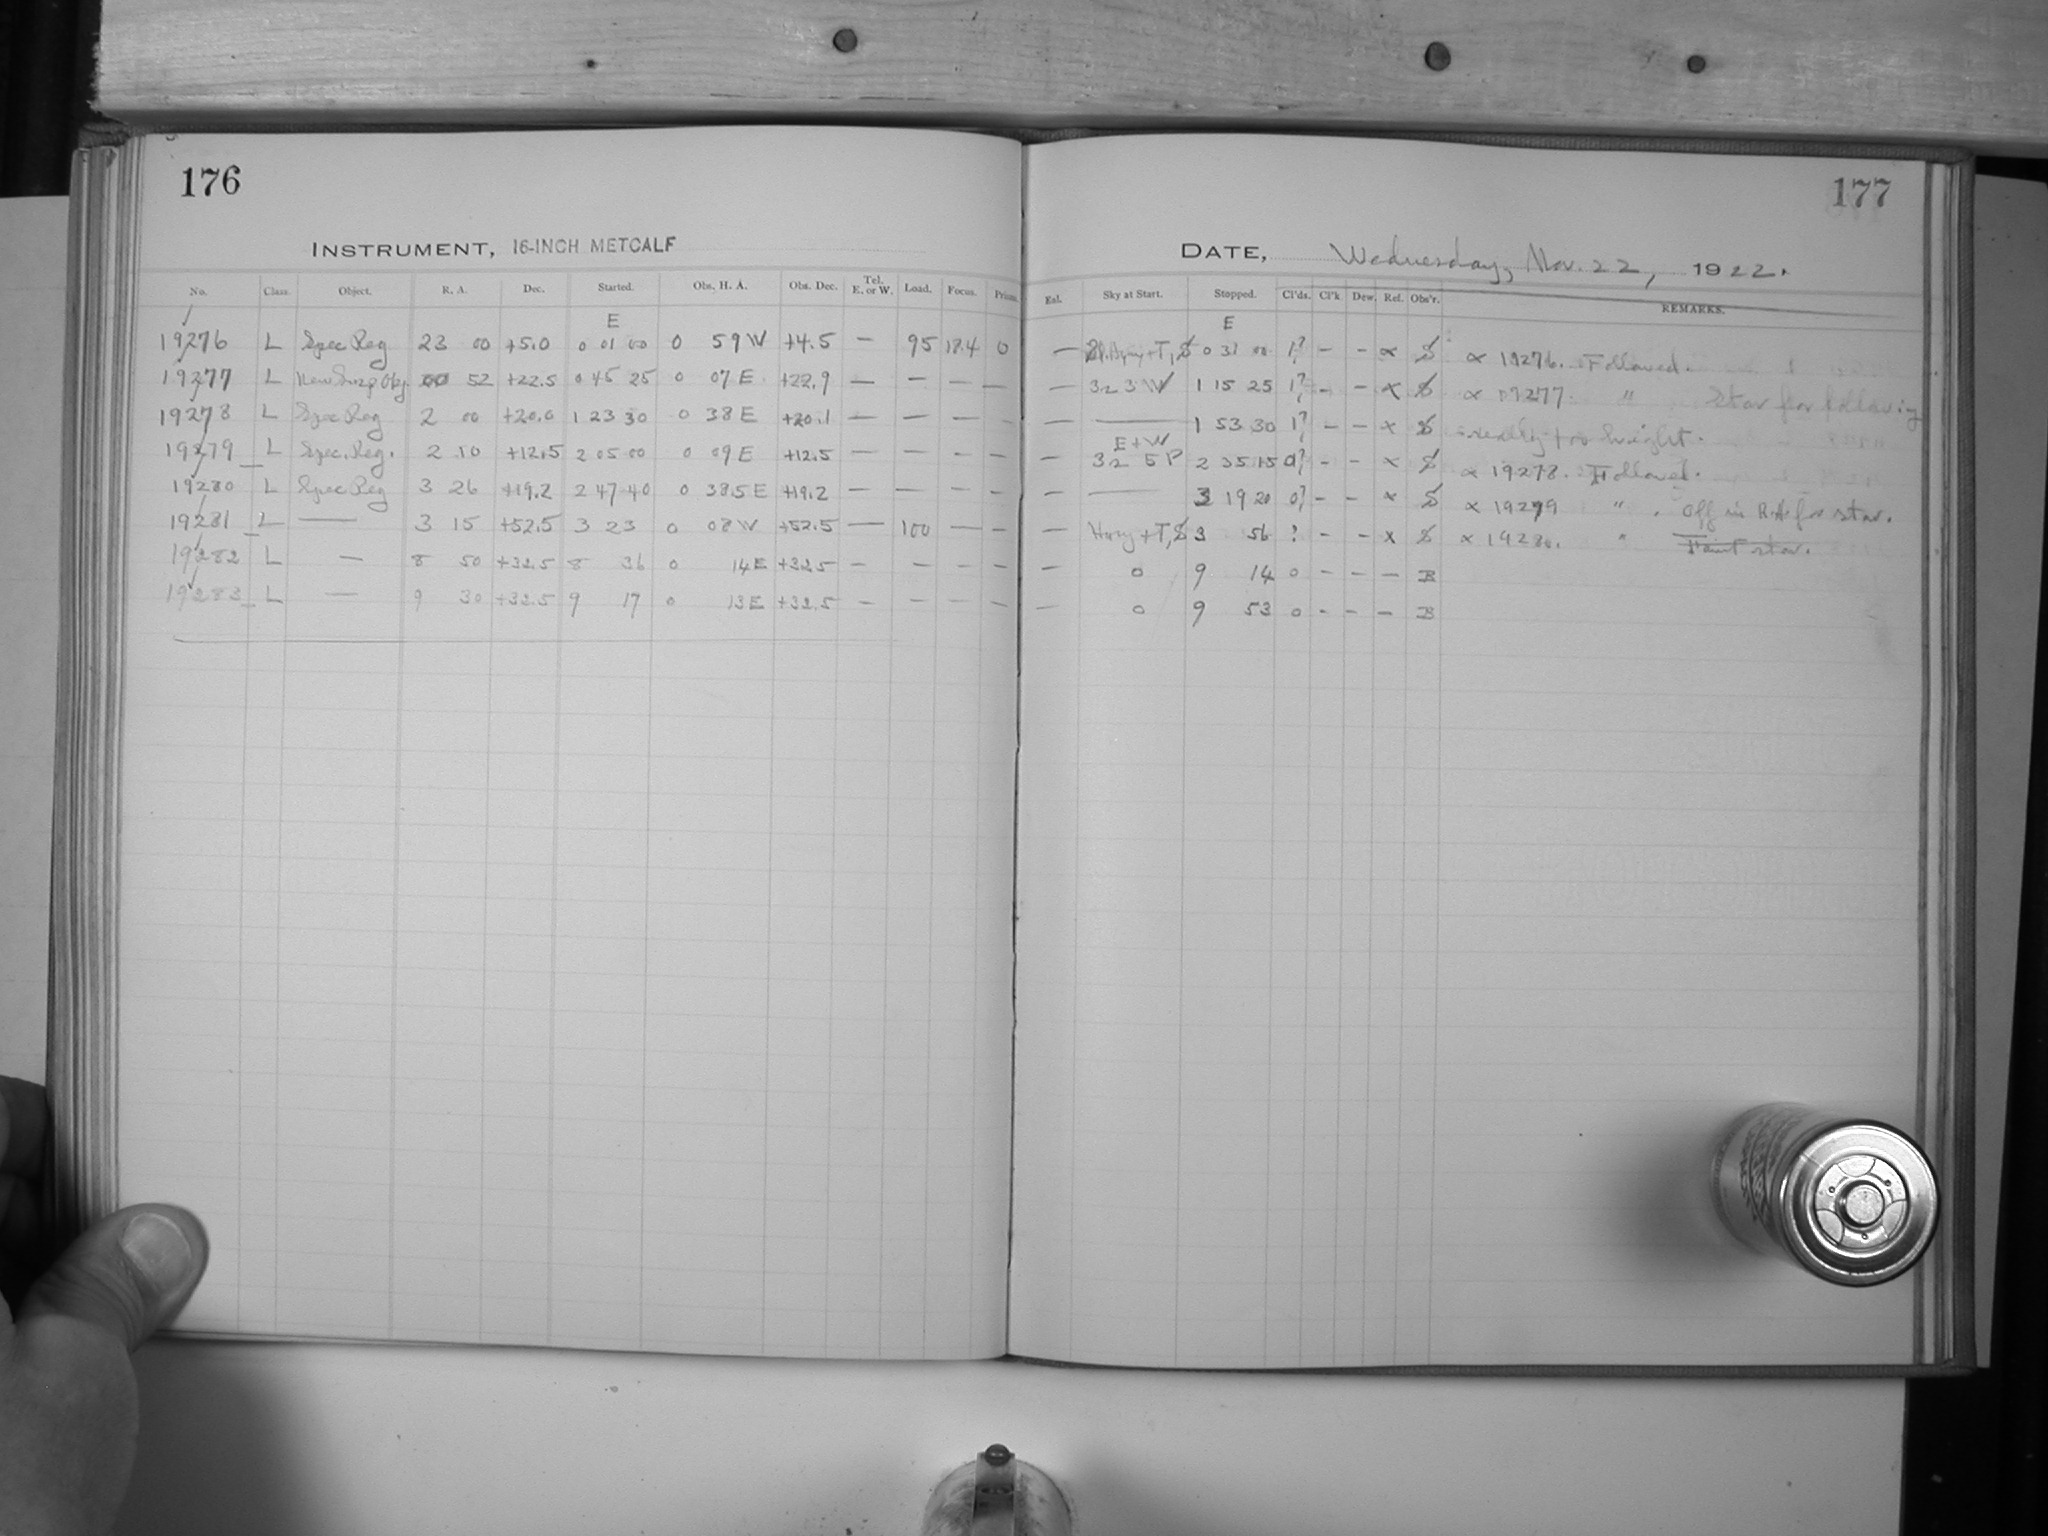 176
INSTRUMENT, 16-INCH METCALF
No. Class. Object. R. A. Dec. Started. Obs. H. A. Obs. Dec. Tel. E. or W. Load. Focus. Prism.
E
19276 L Spec Reg 23 00 +5.0 0 01 00 0 59 W +4.5 — 95 18.4 0
19277 L 52 +22.5 0 45 25 0 07 E +22.9 — — — —
19278 L Spec Reg 2 00 +20.0 1 23 30 0 38 E +20.1 — — — —
19279 L Spec. Reg. 2 10 +12.5 2 05 00 0 09 E +12.5 — — — —
19280 L Spec Reg 3 26 +19.2 2 47 40 0 38.5 E +19.2 — — — —
19281 L — 3 15 +52.5 3 23 0 08 W +52.5 — 100 — —
19282 L — 8 50 +32.5 8 36 0 14 E +32.5 — — — —
19283 L — 9 30 +32.5 9 17 0 13 E +32.5 — — — —
177
DATE, Wednesday, Nov. 22, 1922.
Eal. Sky at Start. Stopped. Cl'ds. Cl'k. Dew. Ref. Obs'r. REMARKS.
E
— 0 31 00 1? — — ∝ S ∝ 19276. Followed.
— 323 W 1 15 25 1? — — ∝ S ∝ 19277. " Star for following
— — 1 53 30 1? — — x S really too bright.
E + W
— 32 5 P 2 35 15 0? — — x S ∝ 19278. Followed.
— — 3 19 20 0? — — x S ∝ 19279 " . Off in R.A. for star.
— Hazy + T, S 3 56 ? — — x S ∝ 19280. " Faint star.
— 0 9 14 0 — — — B
— 0 9 53 0 — — — B